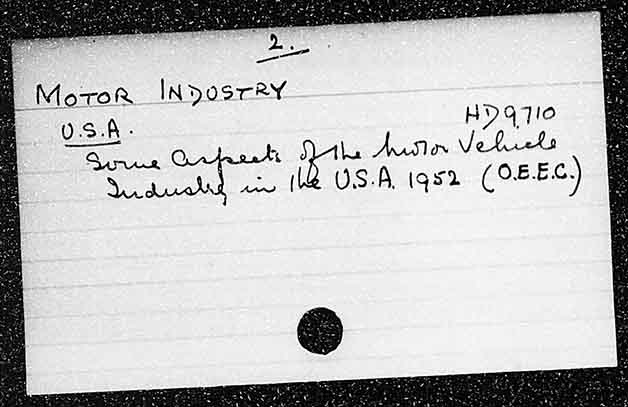 2.
MOTOR INDUSTRY
U.S.A.
HD9710
Some Aspects of the Motor Vehicle
Industry in the U.S.A. 1952 (O.E.E.C.)